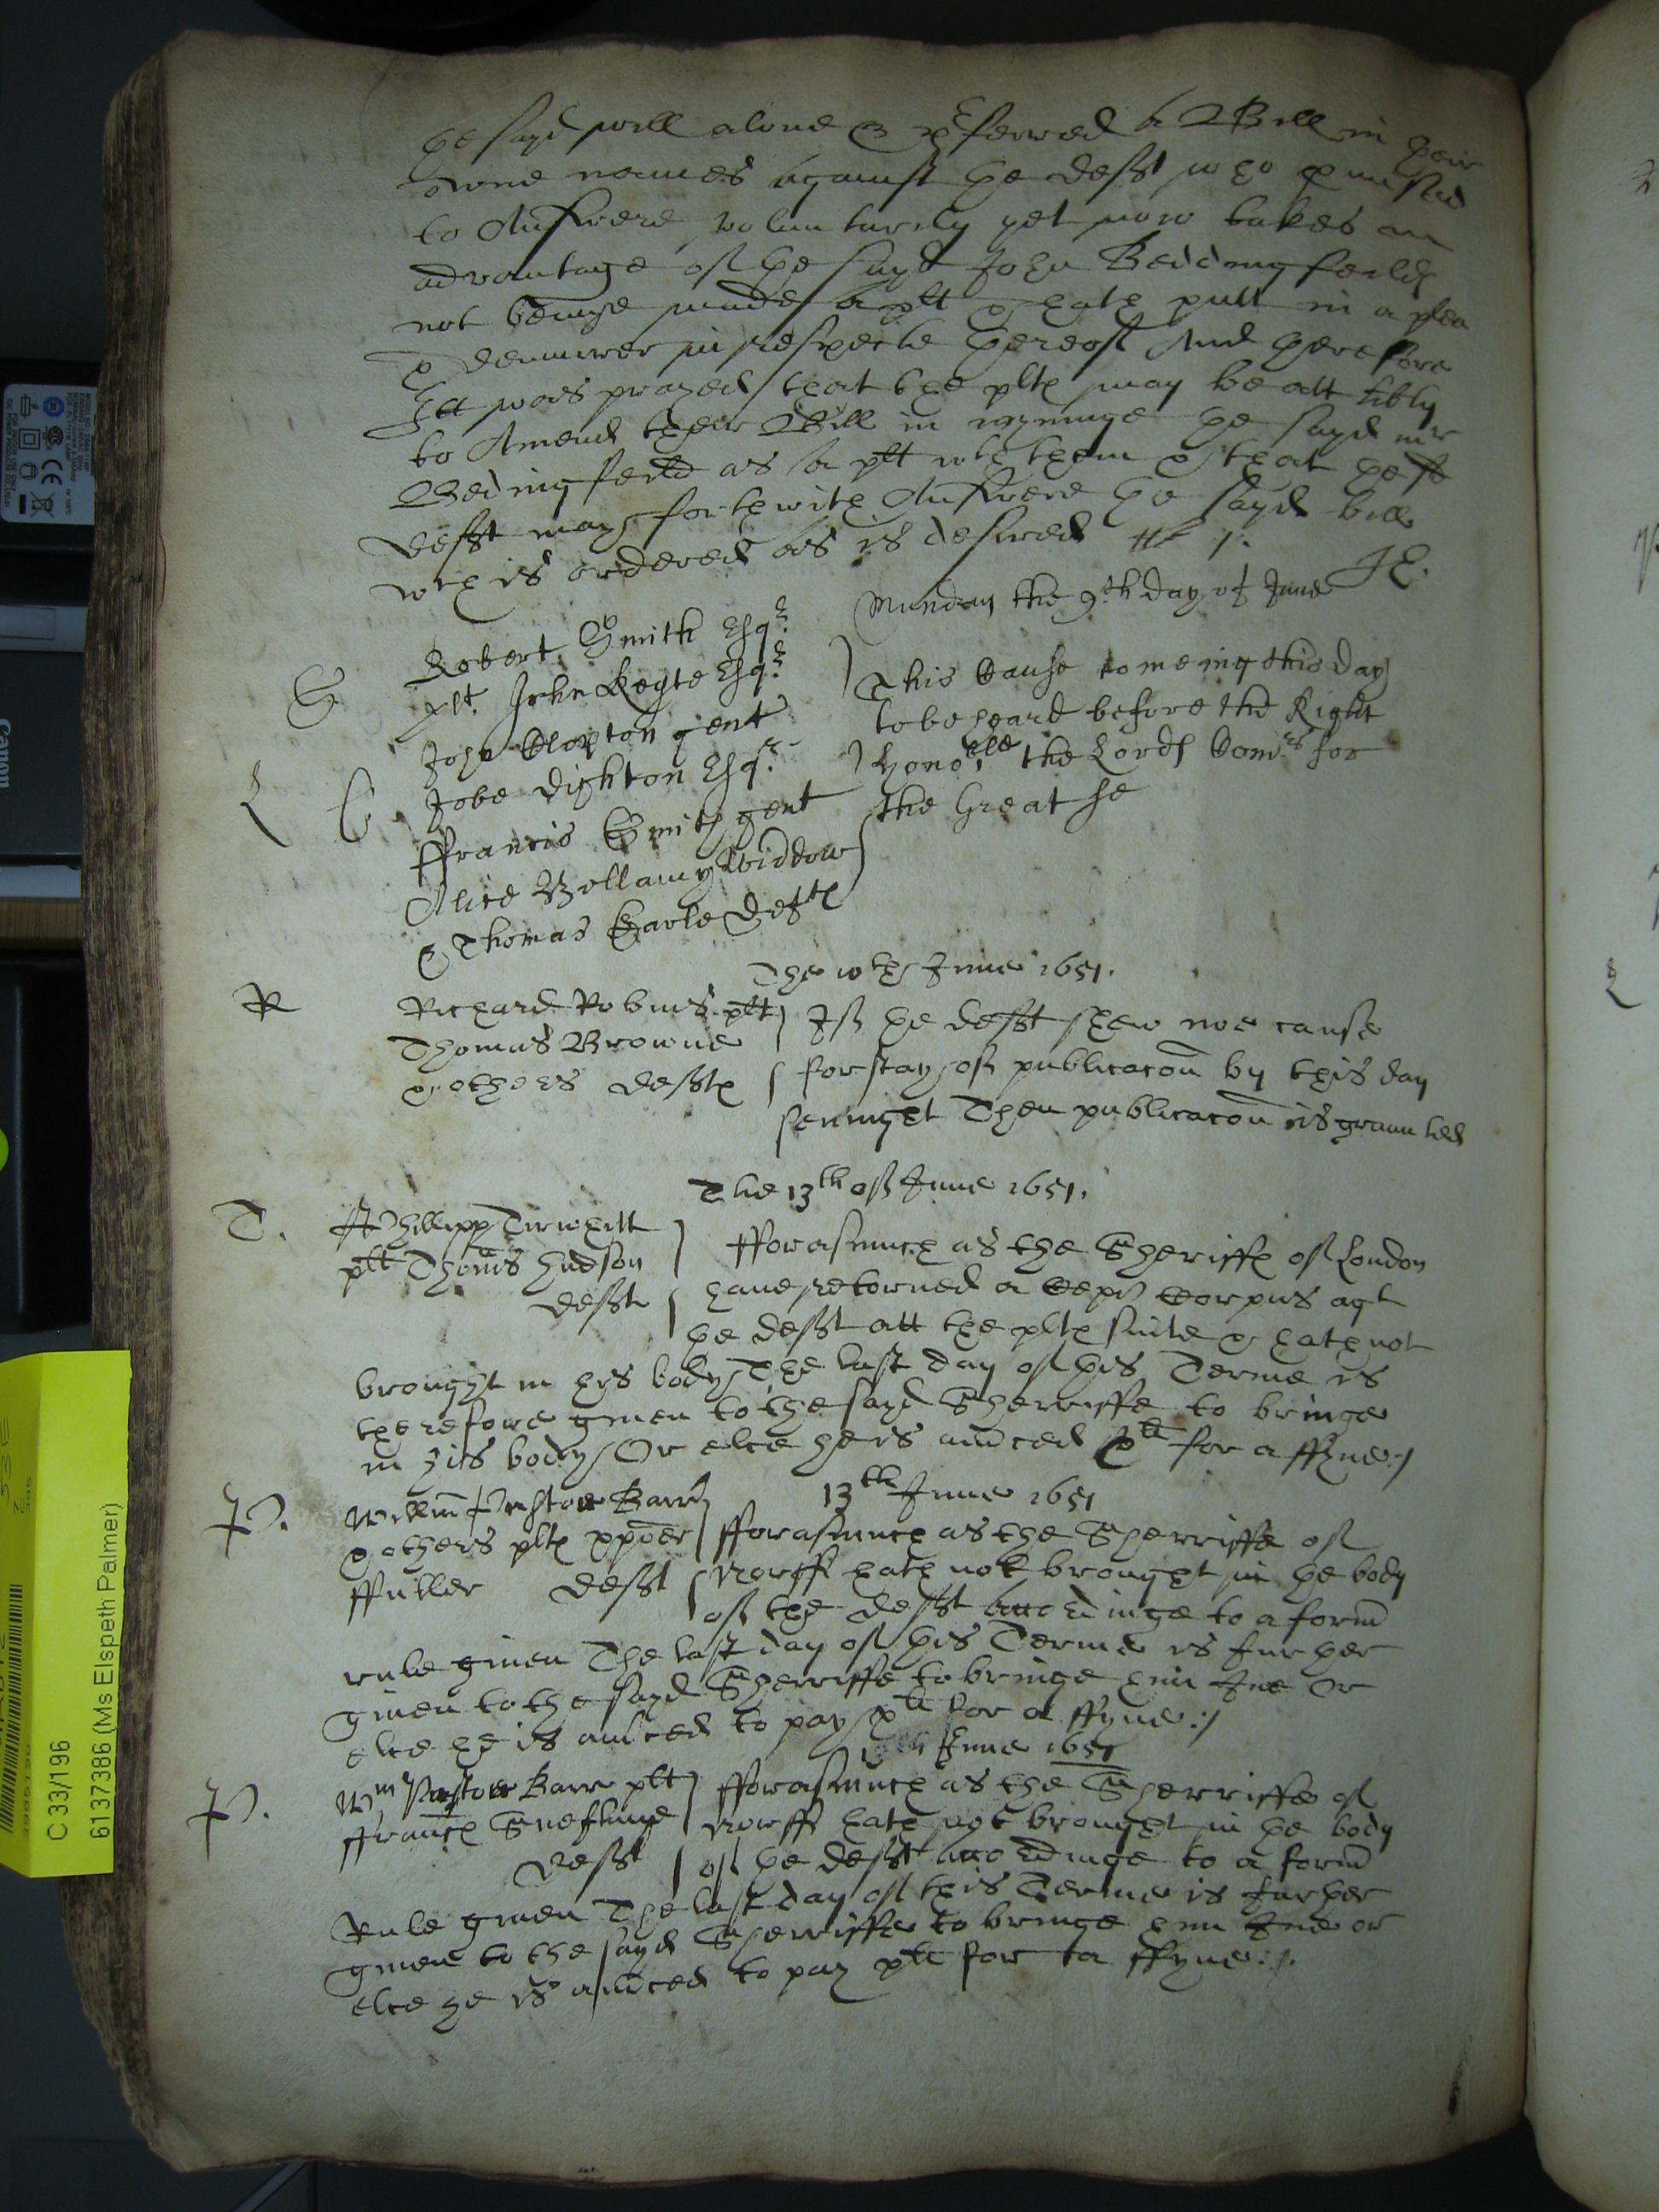 þe sayd will alone & pferred a Bill in their
owne names against þe defft who p'mised
to Answere voluntarily yet now takes an
advantage of þe sayd John Beddingfeild
not beinge made a plt & hath putt in a plea
& demurrer in respecte thereof And therefore
Itt was prayed that the plts may be att libty
to Amend their Bill in inge þe sayd mr
Bedingfeild as a plt wth them & that þe
defft may forthwith Answere þe sayd bill
wch is ordered as is desired
Munday the 9th day of June
S
Robert Smith Esqr
plt. John Keyte Esqr
John Clopton gent
Jobe Dighton Esqr
ffrancis Smith gent
Alice Bellamy Widdow
& Thomas Earle Defts
This Cause comeing this day
to be heard before the Right
Honoble the Lords Comrs for
the Great se
The 10th June 1651.
R
Richard Robins plt
Thomas Browne
& others deffts
If þe defft shew noe cause
for stay of publicacon by this day
sennight Then publicacon is graunted
The 13th of June 1651.
T.
Phillipp Tirwhitt
plt Thoms Hudson
defft
fforasmuch as the Sheriffs of London
haue retorned a Cepi Corpus agt
þe defft att the plts suite & hath not
brought in his body The last day of this Terme is
therefore giuen to the sayd Sherriffe to bringe
in his body Or elce he is amced for a ffyne
13th June 1651
P.
Willm Paston Barrt
& others plts
ffuller defft
fforasmuch as the Sherriffe of
Norff hath not brought in þe body
of the defft accordinge to a form
rule giuen The last day of this Terme is further
giuen to the sayd Sherriffe to bringe him Ine Or
elce he is amced to pay for a ffyne
June 1651
P.
Wm Paston Barr plt
ffrancs Sneflinge
defft
fforasmuch as the Sherriffe of
Norff hath not brought in þe body
of þe defft accordinge to a form
Rule giuen The last day of this Terme is further
giuen to the sayd Sherriffe to bringe him Ine or
elce he is amced to pay for a ffyne
C 33/196
6137386 (Ms Elspeth Palmer)
Canon